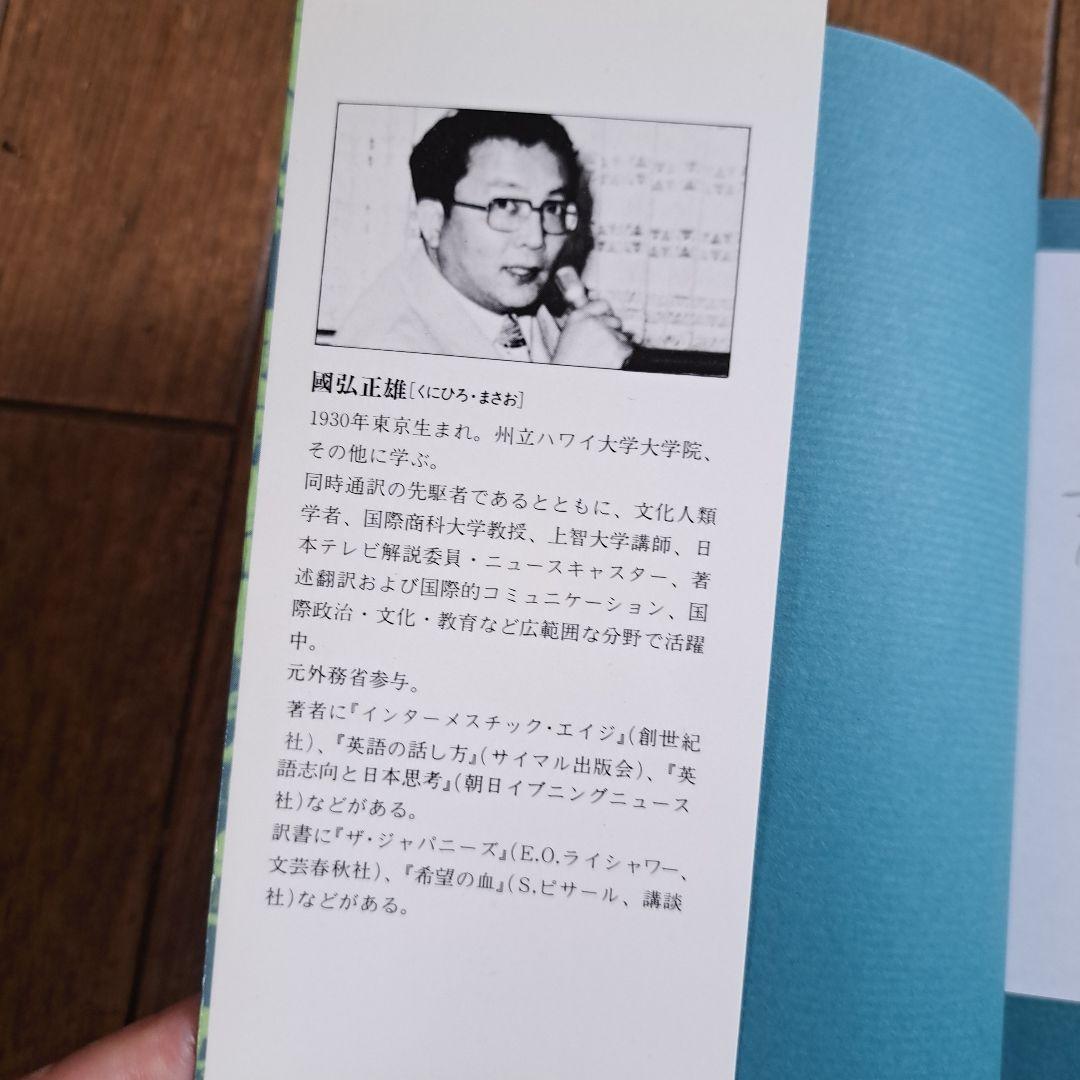 國弘正雄[くにひろ・まさお]
1930年東京生まれ。州立ハワイ大学大学院、
その他に学ぶ。
同時通訳の先駆者であるとともに、文化人類
学者、国際商科大学教授、上智大学講師、日
本テレビ解説委員・ニュースキャスター、著
述翻訳および国際的コミュニケーション、国
際政治・文化・教育など広範囲な分野で活躍
中。
元外務省参与。
著者に『インターメスチック・エイジ』(創世紀
社)、『英語の話し方』(サイマル出版会)、『英
語志向と日本思考』(朝日イブニングニュース
社)などがある。
訳書に『ザ・ジャパニーズ』(E.O.ライシャワー、
文芸春秋社)、『希望の血』(S.ピサール、講談
社)などがある。